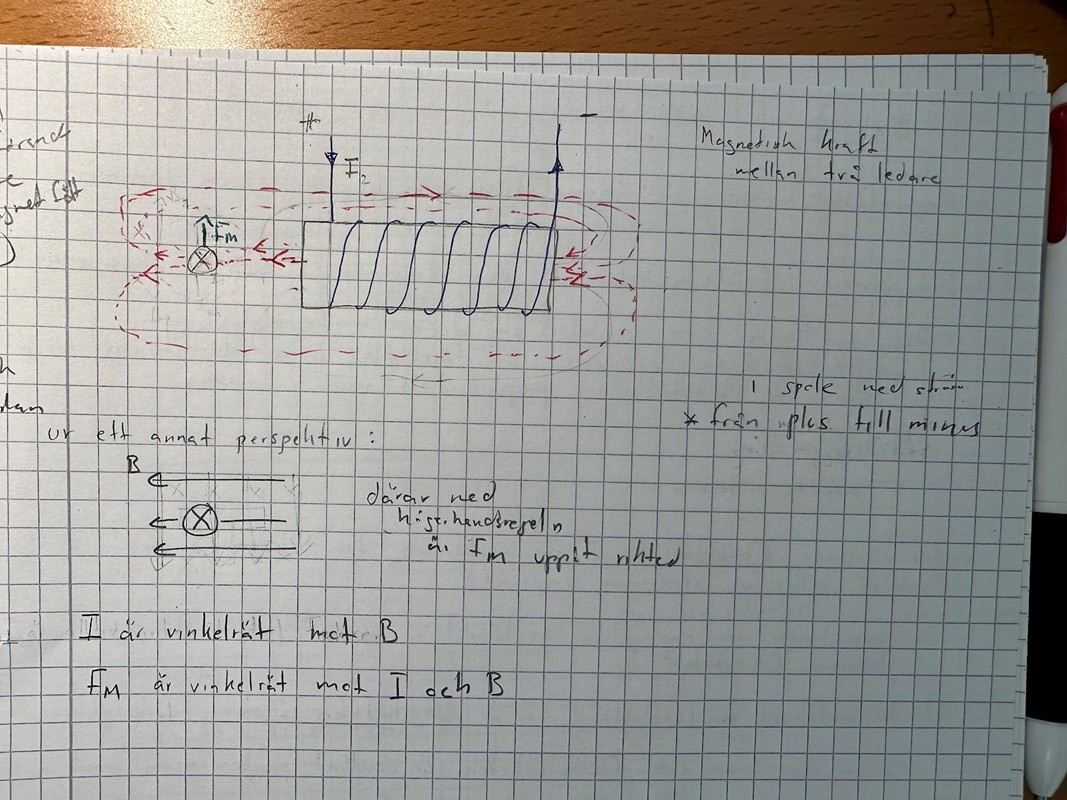 +
−
I₂
Magnetisk kraft
mellan två ledare
Fm
i spole med
* från plus till minus
ur ett annat perspektiv :
B
därar med
högerhandsregeln
är FM uppåt rihted
I är vinkelrät mot B
FM är vinkelrät mot I och B